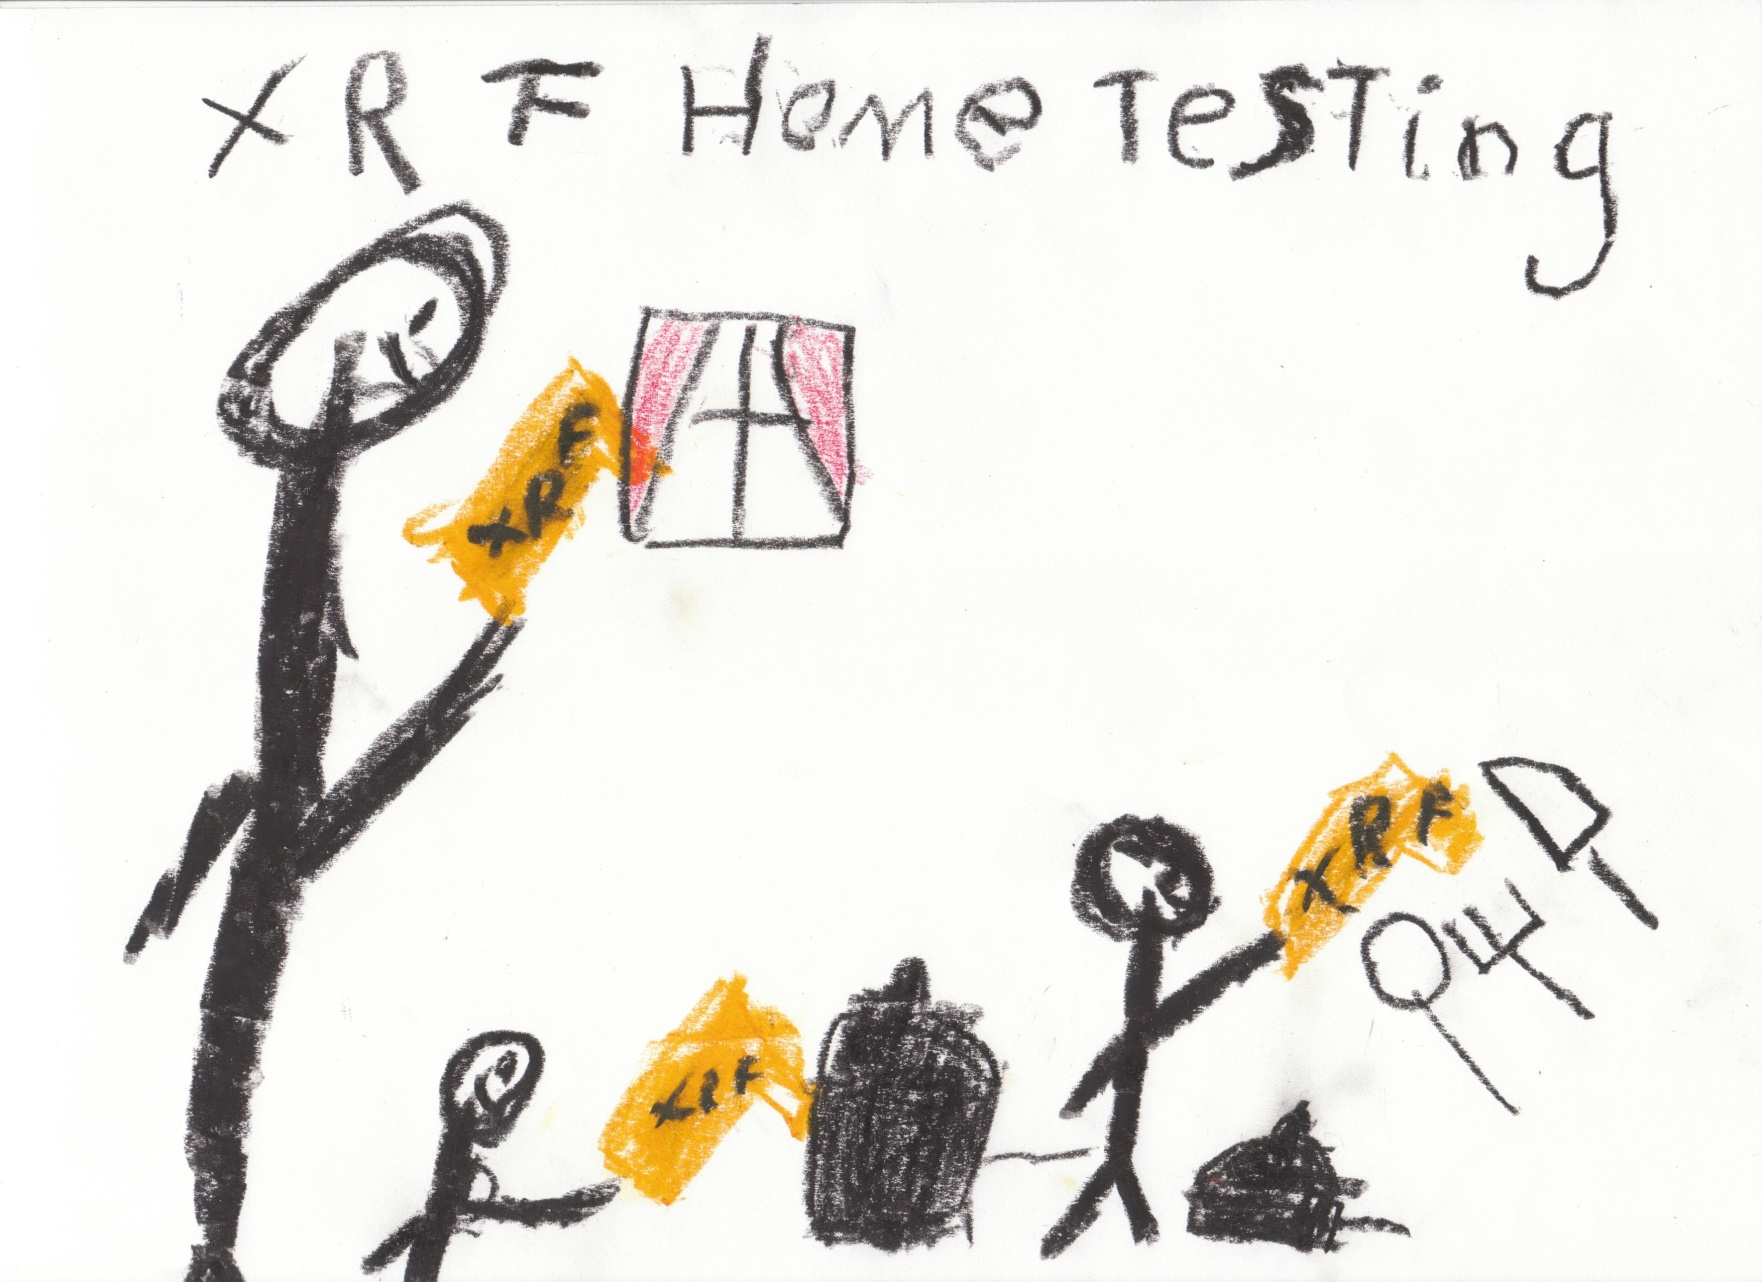 XRF Home Testing
XRF
XRF
XRF